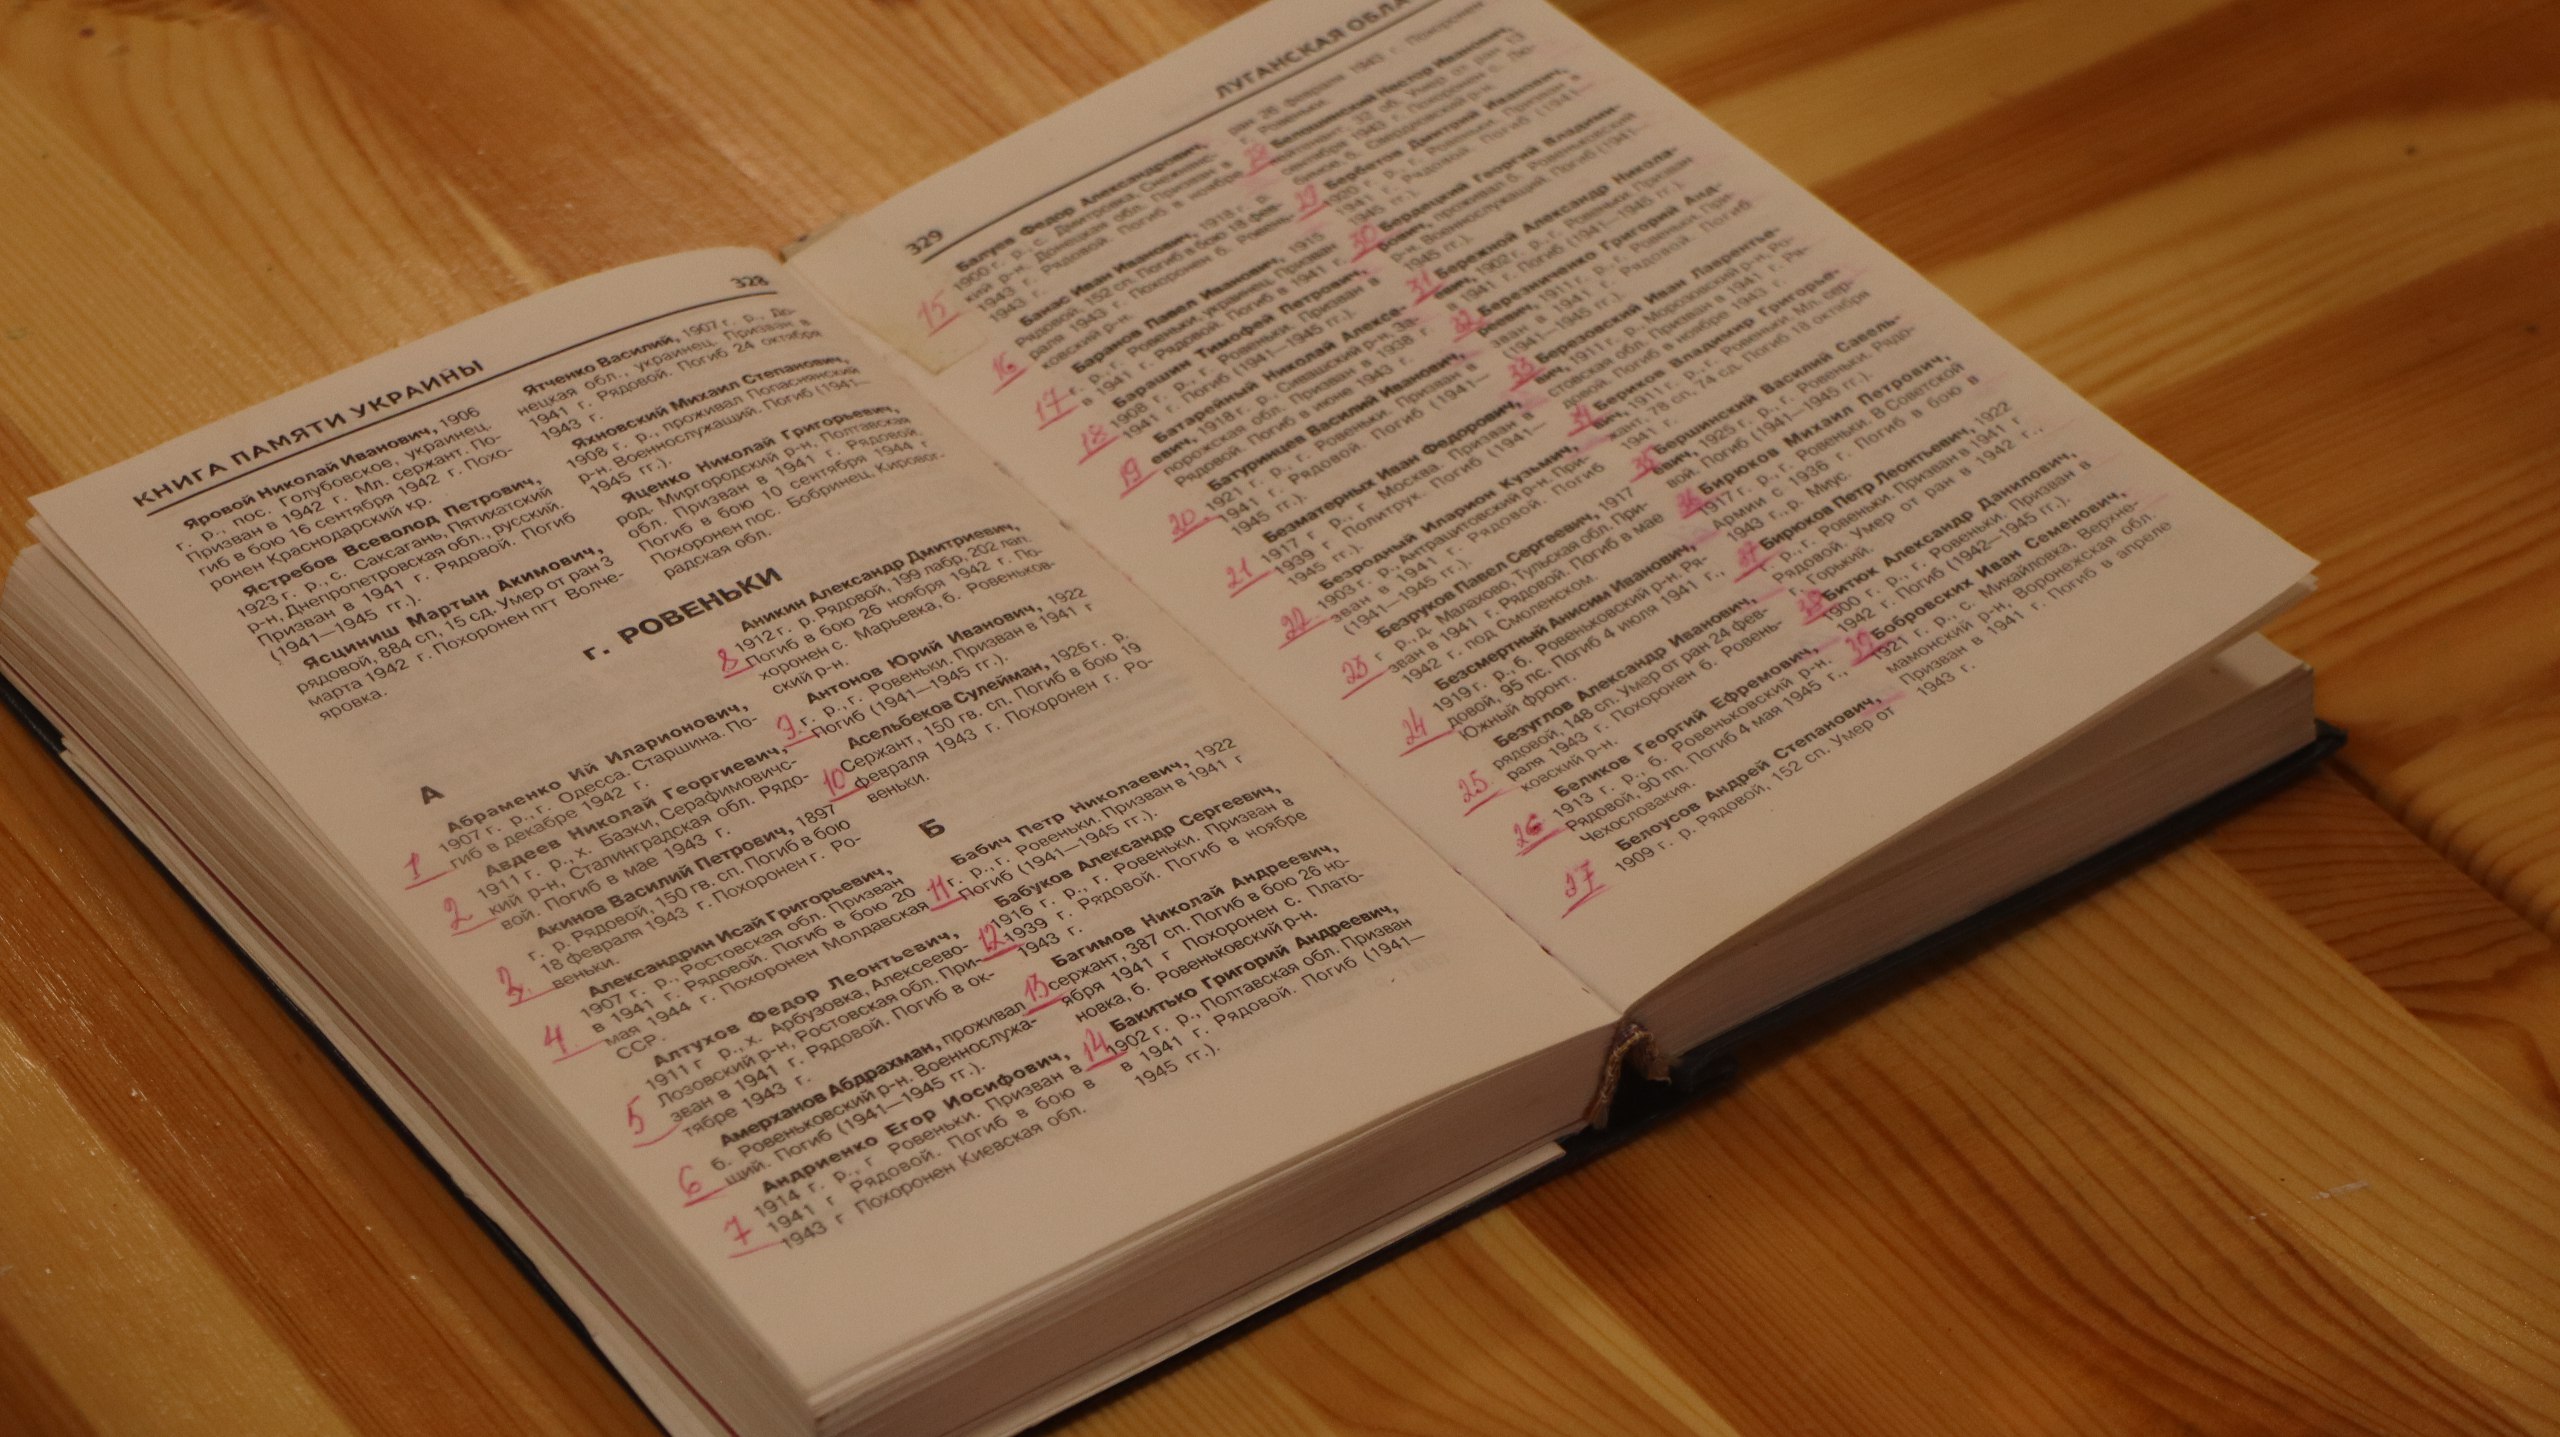 КНИГА ПАМЯТИ УКРАИНЫ
328
Яровой Николай Иванович, 1906
г. р., пос. Голубовское, украинец.
Призван в 1942 г. Мл. сержант. По-
гиб в бою 16 сентября 1942 г. Похо-
ронен Краснодарский кр.
Ястребов Всеволод Петрович,
1923 г. р., с. Саксагань, Пятихатский
р-н, Днепропетровская обл., русский.
Призван в 1941 г. Рядовой. Погиб
(1941—1945 гг.).
Ясциниш Мартын Акимович,
рядовой, 884 сп, 15 сд. Умер от ран 3
марта 1942 г. Похоронен пгт Волче-
яровка.
Ятченко Василий, 1907 г. р., До-
нецкая обл., украинец. Призван в
1941 г. Рядовой. Погиб 24 октября
1943 г.
Яхновский Михаил Степанович,
1908 г. р., проживал Попаснянский
р-н. Военнослужащий. Погиб (1941—
1945 гг.).
Яценко Николай Григорьевич,
род. Миргородский р-н, Полтавская
обл. Призван в 1941 г. Рядовой.
Погиб в бою 10 сентября 1944 г
Похоронен пос. Бобринец, Кировог-
радская обл.
г. РОВЕНЬКИ
А
Абраменко Ий Иларионович,
1907 г. р., г. Одесса. Старшина. По-
1 гиб в декабре 1942 г.
Авдеев Николай Георгиевич,
1911 г. р., х. Базки, Серафимовичс-
2 кий р-н, Сталинградская обл. Рядо-
вой. Погиб в мае 1943 г.
Акинов Василий Петрович, 1897
г. р. Рядовой, 150 гв. сп. Погиб в бою
18 февраля 1943 г. Похоронен г. Ро-
3. веньки.
Александрин Исай Григорьевич,
1907 г. р., Ростовская обл. Призван
в 1941 г. Рядовой. Погиб в бою 20
4. мая 1944 г. Похоронен Молдавская
ССР.
Алтухов Федор Леонтьевич,
1911 г р., х. Арбузовка, Алексеево-
Лозовский р-н, Ростовская обл. При-
5 зван в 1941 г. Рядовой. Погиб в ок-
тябре 1943 г.
Амерханов Абдрахман, проживал
б. Ровеньковский р-н. Военнослужа-
6 щий. Погиб (1941—1945 гг.).
Андриенко Егор Иосифович,
1914 г. р., г Ровеньки. Призван в
1941 г Рядовой. Погиб в бою в
7 1943 г Похоронен Киевская обл.
Аникин Александр Дмитриевич,
1912 г. р. Рядовой, 199 лабр, 202 лап.
8 Погиб в бою 26 ноября 1942 г. По-
хоронен с. Марьевка, б. Ровеньков-
ский р-н.
Антонов Юрий Иванович, 1922
9. г. р., г. Ровеньки. Призван в 1941 г
Погиб (1941—1945 гг.).
Асельбеков Сулейман, 1926 г. р.
10 Сержант, 150 гв. сп. Погиб в бою 19
февраля 1943 г. Похоронен г. Ро-
веньки.
Б
Бабич Петр Николаевич, 1922
11 г. р., г. Ровеньки. Призван в 1941 г
Погиб (1941—1945 гг.).
Бабуков Александр Сергеевич,
1916 г. р., г. Ровеньки. Призван в
12 1939 г. Рядовой. Погиб в ноябре
1943 г.
Багимов Николай Андреевич,
13 сержант, 387 сп. Погиб в бою 26 но-
ября 1941 г Похоронен с. Плато-
новка, б. Ровеньковский р-н.
Бакитько Григорий Андреевич,
14 1902 г. р., Полтавская обл. Призван
в 1941 г. Рядовой. Погиб (1941—
1945 гг.).
329
ЛУГАНСКАЯ ОБЛА
Балуев Федор Александрович,
1900 г. р., с. Дмитровка,
кий р-н, Донецкая обл. Призван в
15 1943 г. Рядовой. Погиб в ноябре
1943 г.
Банас Иван Иванович, 1918 г. р.
Рядовой, 152 сп. Погиб в бою 18 фев-
16 раля 1943 г. Похоронен б. Ровень-
ковский р-н.
Баранов Павел Иванович, 1915
17 г. р., г. Ровеньки, украинец. Призван
в 1941 г. Рядовой. Погиб в 1941 г.
Барашин Тимофей Петрович,
1908 г. р., г. Ровеньки. Призван в
18 1941 г. Погиб (1941—1945 гг.).
Батарейный Николай Алексе-
евич, 1918 г. р., Сивашский р-н, За-
19 порожская обл. Призван в 1938 г
Рядовой. Погиб в июне 1943 г.
Батуринцев Василий Иванович,
1921 г. р., г. Ровеньки. Призван в
20 1941 г. Рядовой. Погиб (1941—
1945 гг.).
Безматерных Иван Федорович,
1917 г. р., г Москва. Призван в
21 1939 г Политрук. Погиб (1941—
1945 гг.).
Безродный Иларион Кузьмич,
1903 г. р., Антрацитовский р-н. При-
22 зван в 1941 г. Рядовой. Погиб
(1941—1945 гг.).
Безруков Павел Сергеевич, 1917
г р., д. Малахово, Тульская обл. При-
23 зван в 1941 г. Рядовой. Погиб в мае
1942 г. под Смоленском.
Безсмертный Анисим Иванович,
1919 г. р., б. Ровеньковский р-н. Ря-
24 довой, 95 пс. Погиб 4 июля 1941 г.,
Южный фронт.
Безуглов Александр Иванович,
рядовой, 148 сп. Умер от ран 24 фев-
25 раля 1943 г. Похоронен б. Ровень-
ковский р-н.
Беликов Георгий Ефремович,
1913 г. р., б. Ровеньковский р-н.
26 Рядовой, 90 пп. Погиб 4 мая 1945 г.,
Чехословакия.
Белоусов Андрей Степанович,
27 1909 г. р. Рядовой, 152 сп. Умер от
ран 26 февраля 1943 г. Похоронен
г. Ровеньки.
28
29 Бербетов Дмитрий Иванович,
1920 г. р., г. Ровеньки. Призван в
1941 г. Рядовой. Погиб (1941—
1945 гг.).
Георгий Владими-
30 рович, проживал б. Ровеньковский
р-н. Военнослужащий. Погиб (1941—
1945 гг.).
Бережной Александр Никола-
31 евич, 1902 г. р., г. Ровеньки. Призван
в 1941 г. Погиб (1941—1945 гг.).
Березниченко Григорий Анд-
32 реевич, 1911 г. р., г. Ровеньки. При-
зван в 1941 г. Рядовой. Погиб
(1941—1945 гг.).
Березовский Иван Лаврентье-
33 вич, 1911 г. р., Морозовский р-н, Ро-
стовская обл. Призван в 1941 г. Ря-
довой. Погиб в ноябре 1943 г.
Бериков Владимир Григорье-
34 вич, 1911 г. р., г Ровеньки. Мл. сер-
жант, 78 сп, 74 сд. Погиб 18 октября
1941 г.
Бершинский Василий Савель-
35 евич, 1925 г. р., г. Ровеньки. Рядо-
вой. Погиб (1941—1945 гг.).
Бирюков Михаил Петрович,
36 1917 г. р., г. Ровеньки. В Советской
Армии с 1936 г. Погиб в бою в
1943 г., р. Миус.
Бирюков Петр Леонтьевич, 1922
37 г. р., г. Ровеньки. Призван в 1941 г
Рядовой. Умер от ран в 1942 г.,
г. Горький.
Битюк Александр Данилович,
38 1900 г. р., г. Ровеньки. Призван в
1942 г. Погиб (1942—1945 гг.).
Бобровских Иван Семенович,
39 1921 г. р., с. Михайловка, Верхне-
мамонский р-н, Воронежская обл.
Призван в 1941 г. Погиб в апреле
1943 г.